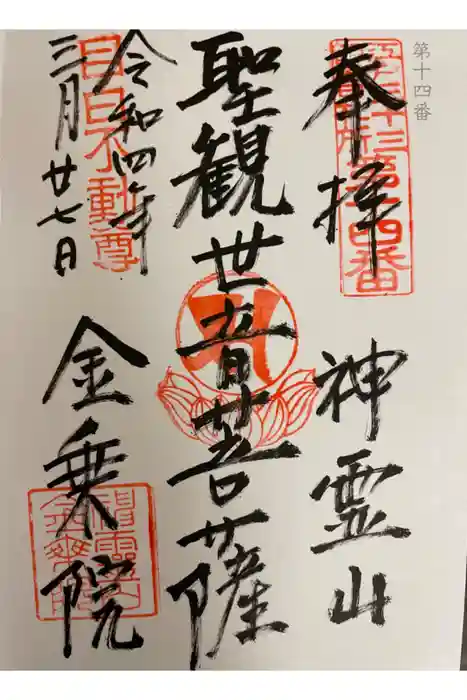 第十四番
奉拝
神霊山
聖観世音菩薩
令和四年
三月廿七日
金乗院
江戸三十三
観音札所
第十四番
目白不動尊
神霊山
金乗院